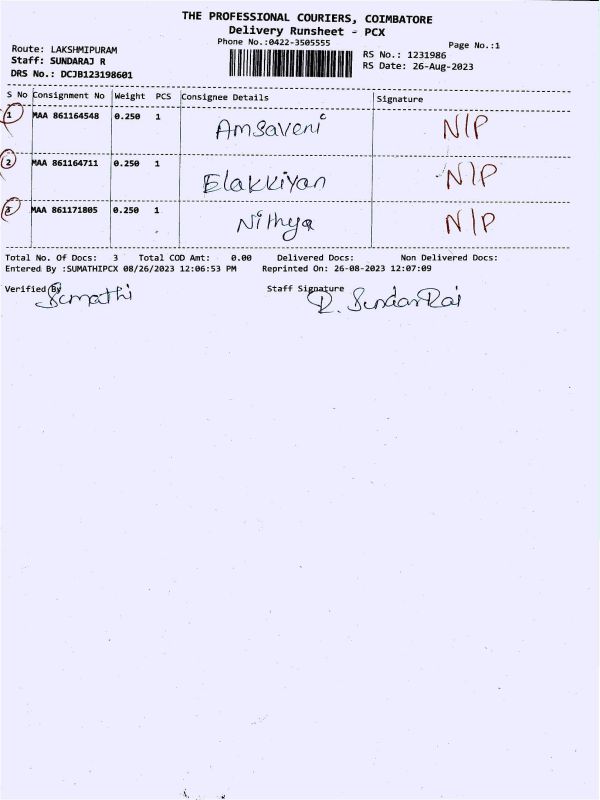 THE PROFESSIONAL COURIERS, COIMBATORE
Delivery Runsheet - PCX
Phone No.:0422-3505555
Page No.:1
Route: LAKSHMIPURAM
Staff: SUNDARAJ R
DRS No.: DCJB123198601
RS No.: 1231986
RS Date: 26-Aug-2023
S No Consignment No Weight PCS Consignee Details Signature
1 MAA 861164548 0.250 1 Amsaveni N/P
2 MAA 861164711 0.250 1 Elakkiyan N/P
3 MAA 861171805 0.250 1 Nithya N/P
Total No. Of Docs: 3 Total COD Amt: 0.00 Delivered Docs: Non Delivered Docs:
Entered By :SUMATHIPCX 08/26/2023 12:06:53 PM Reprinted On: 26-08-2023 12:07:09
Verified By Sumathi Staff Signature R. SundarRaj